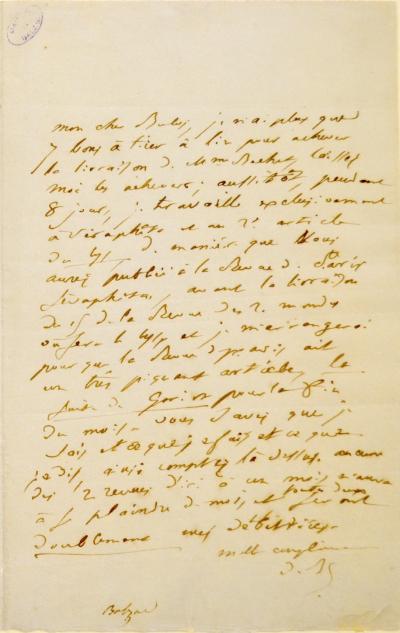 mon cher Buloz, je n'ai plus que
7 bons à tirer à lire pour achever
la livraison de Mme Bechet, laissez
moi les achever; aussitôt, pendant
8 jours, je travaille exclusivement
à Séraphita et au 2e article
du Lys de manière que Vous
aurez publié à la Revue de Paris
Séraphita, avant la livraison
de la Revue des 2 mondes
on sera le Lys et je m'arrangerai
pour que la Revue de paris ait
un très piquant article, la
suite de Goriot pour la fin
du mois vous savez que je
sais et ce que je fais et ce que
je dis, ainsi comptez là dessus, aucune
des 2 revues d'ici à un mois n'aura
à se plaindre de moi, et
doublement mes
mille compliments
de Bc
Balzac